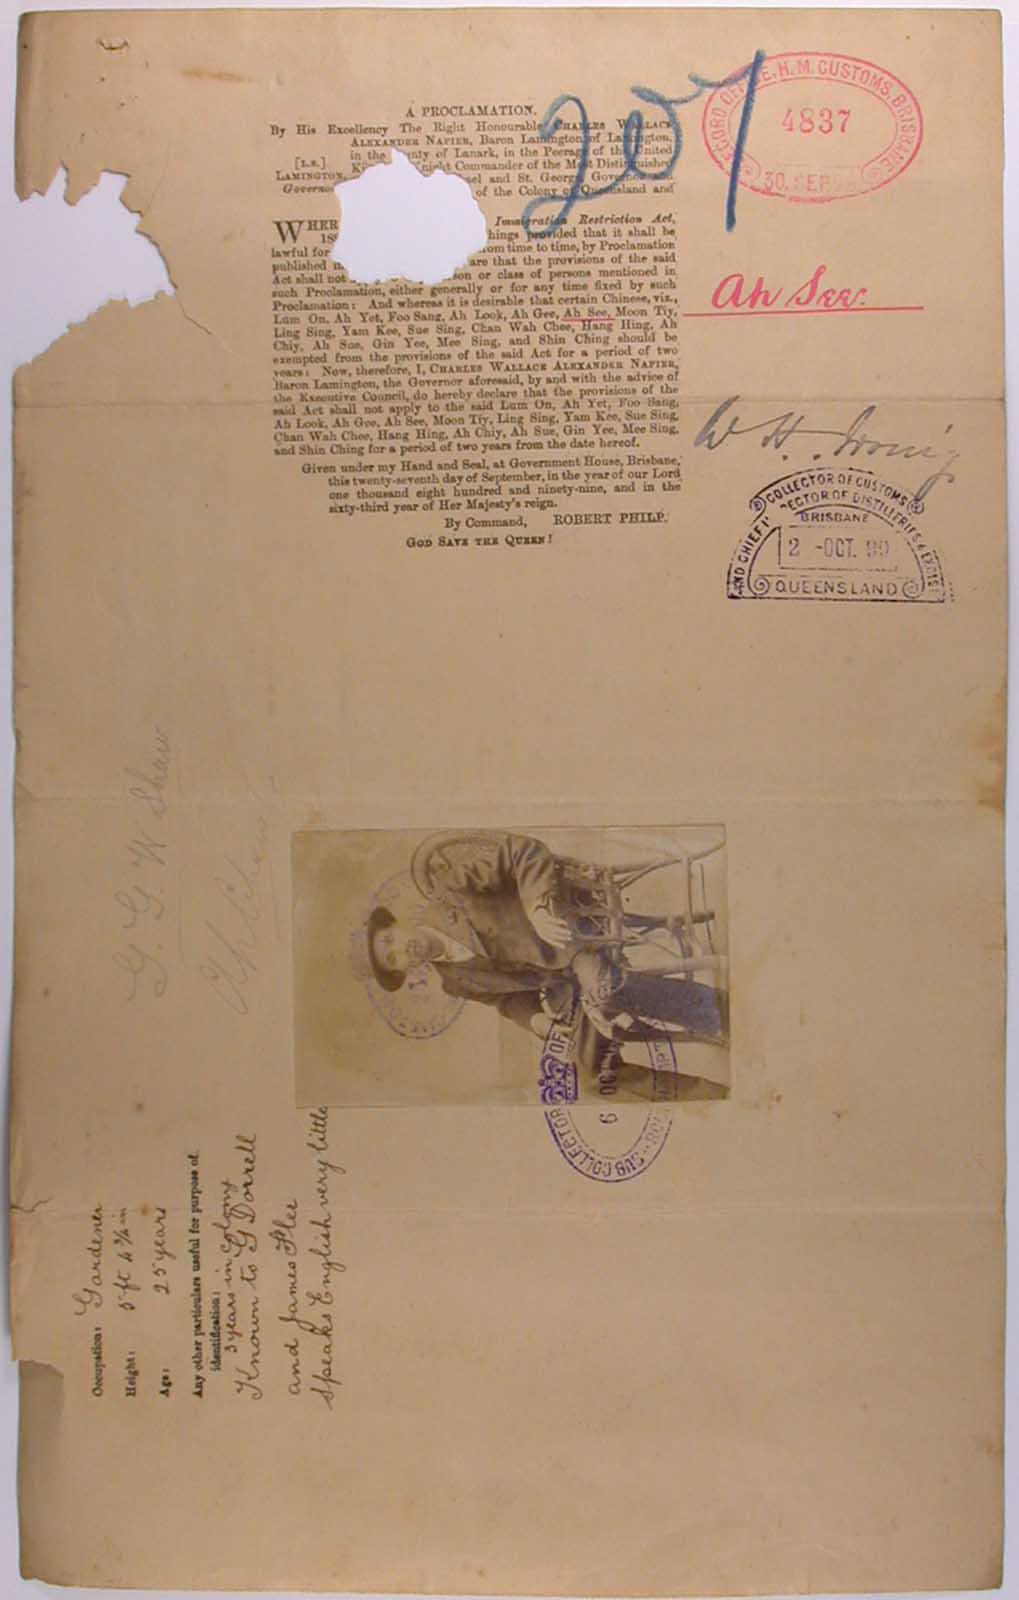 207
RECORD OFFICE, H.M. CUSTOMS, BRISBANE
4837
30. SEP
A PROCLAMATION.
By His Excellency The Right Honourable CHARLES WALLACE
ALEXANDER NAPIER, Baron Lamington, of Lamington,
in the County of Lanark, in the Peerage of the United
[L.S.] Knight Commander of the Most Distinguished
LAMINGTON, and St. George, Governor and
Governor of the Colony of Queensland and
WHER Immigration Restriction Act,
things provided that it shall be
lawful for from time to time, by Proclamation
published in are that the provisions of the said
Act shall not person or class of persons mentioned in
such Proclamation, either generally or for any time fixed by such
Proclamation: And whereas it is desirable that certain Chinese, viz.,
Lum On, Ah Yet, Foo Sang, Ah Look, Ah Gee, Ah See, Moon Tiy,
Ling Sing, Yam Kee, Sue Sing, Chan Wah Chee, Hang Hing, Ah
Chiy, Ah Sue, Gin Yee, Mee Sing, and Shin Ching should be
exempted from the provisions of the said Act for a period of two
years: Now, therefore, I, CHARLES WALLACE ALEXANDER NAPIER,
Baron Lamington, the Governor aforesaid, by and with the advice of
the Executive Council, do hereby declare that the provisions of the
said Act shall not apply to the said Lum On, Ah Yet, Foo Sang,
Ah Look, Ah Gee, Ah See, Moon Tiy, Ling Sing, Yam Kee, Sue Sing,
Chan Wah Chee, Hang Hing, Ah Chiy, Ah Sue, Gin Yee, Mee Sing,
and Shin Ching for a period of two years from the date hereof.
Given under my Hand and Seal, at Government House, Brisbane,
this twenty-seventh day of September, in the year of our Lord
one thousand eight hundred and ninety-nine, and in the
sixty-third year of Her Majesty's reign.
By Command, ROBERT PHILP.
GOD SAVE THE QUEEN!
Ah See.
W H Irving
COLLECTOR OF CUSTOMS
AND CHIEF INSPECTOR OF DISTILLERIES & EXCISE
BRISBANE
2 -OCT. 99
QUEENSLAND
G. G. W Shaw
SUB COLLECTOR OF
6 OCT
Occupation: Gardener
Height: 5 ft 4 3/4 in
Age: 25 years
Any other particulars useful for purpose of
identification:
3 years in Colony
Known to G Dorrell
and James Flee
Speaks English very little